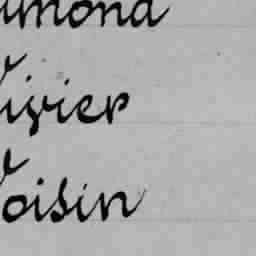 umond
Vivier
Voisin